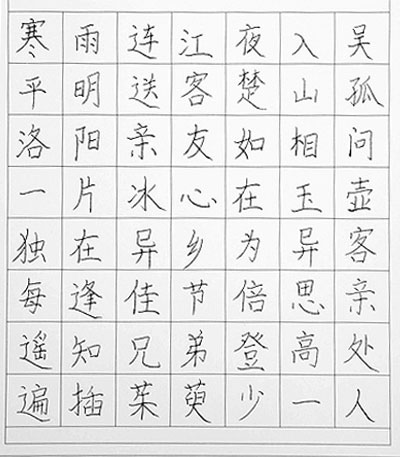 寒雨连江夜入吴
平明送客楚山孤
洛阳亲友如相问
一片冰心在玉壶
独在异乡为异客
每逢佳节倍思亲
遥知兄弟登高处
遍插茱萸少一人